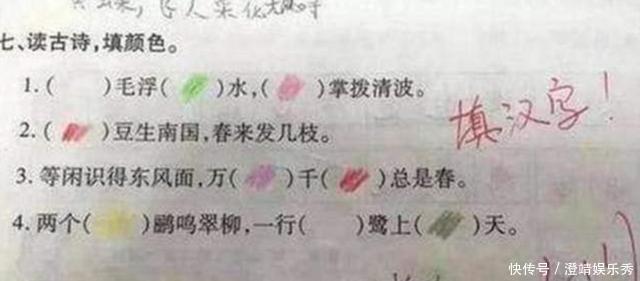 七、读古诗,填颜色。
1.(  )毛浮(  )水,(  )掌拨清波。
2.(  )豆生南国,春来发几枝。
填汉字!
3.等闲识得东风面,万(  )千(  )总是春。
4.两个(  )鹂鸣翠柳,一行(  )鹭上(  )天。
快传号/澄靖娱乐秀